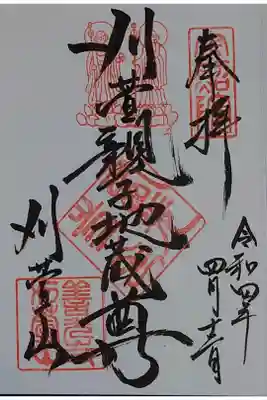 奉拝
令和四年
四月十二日
刈萱親子地蔵尊
刈萱山